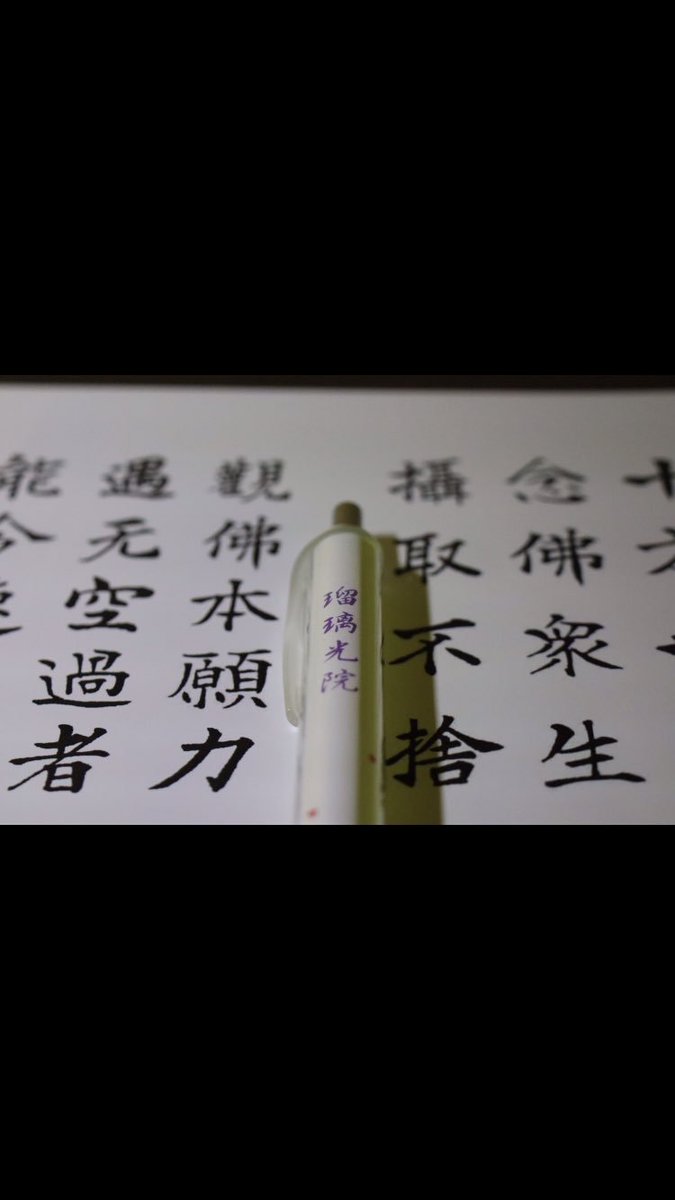 十方
念佛衆生
攝取不捨
瑠璃光院
觀佛本願力
遇无空過者
能令速